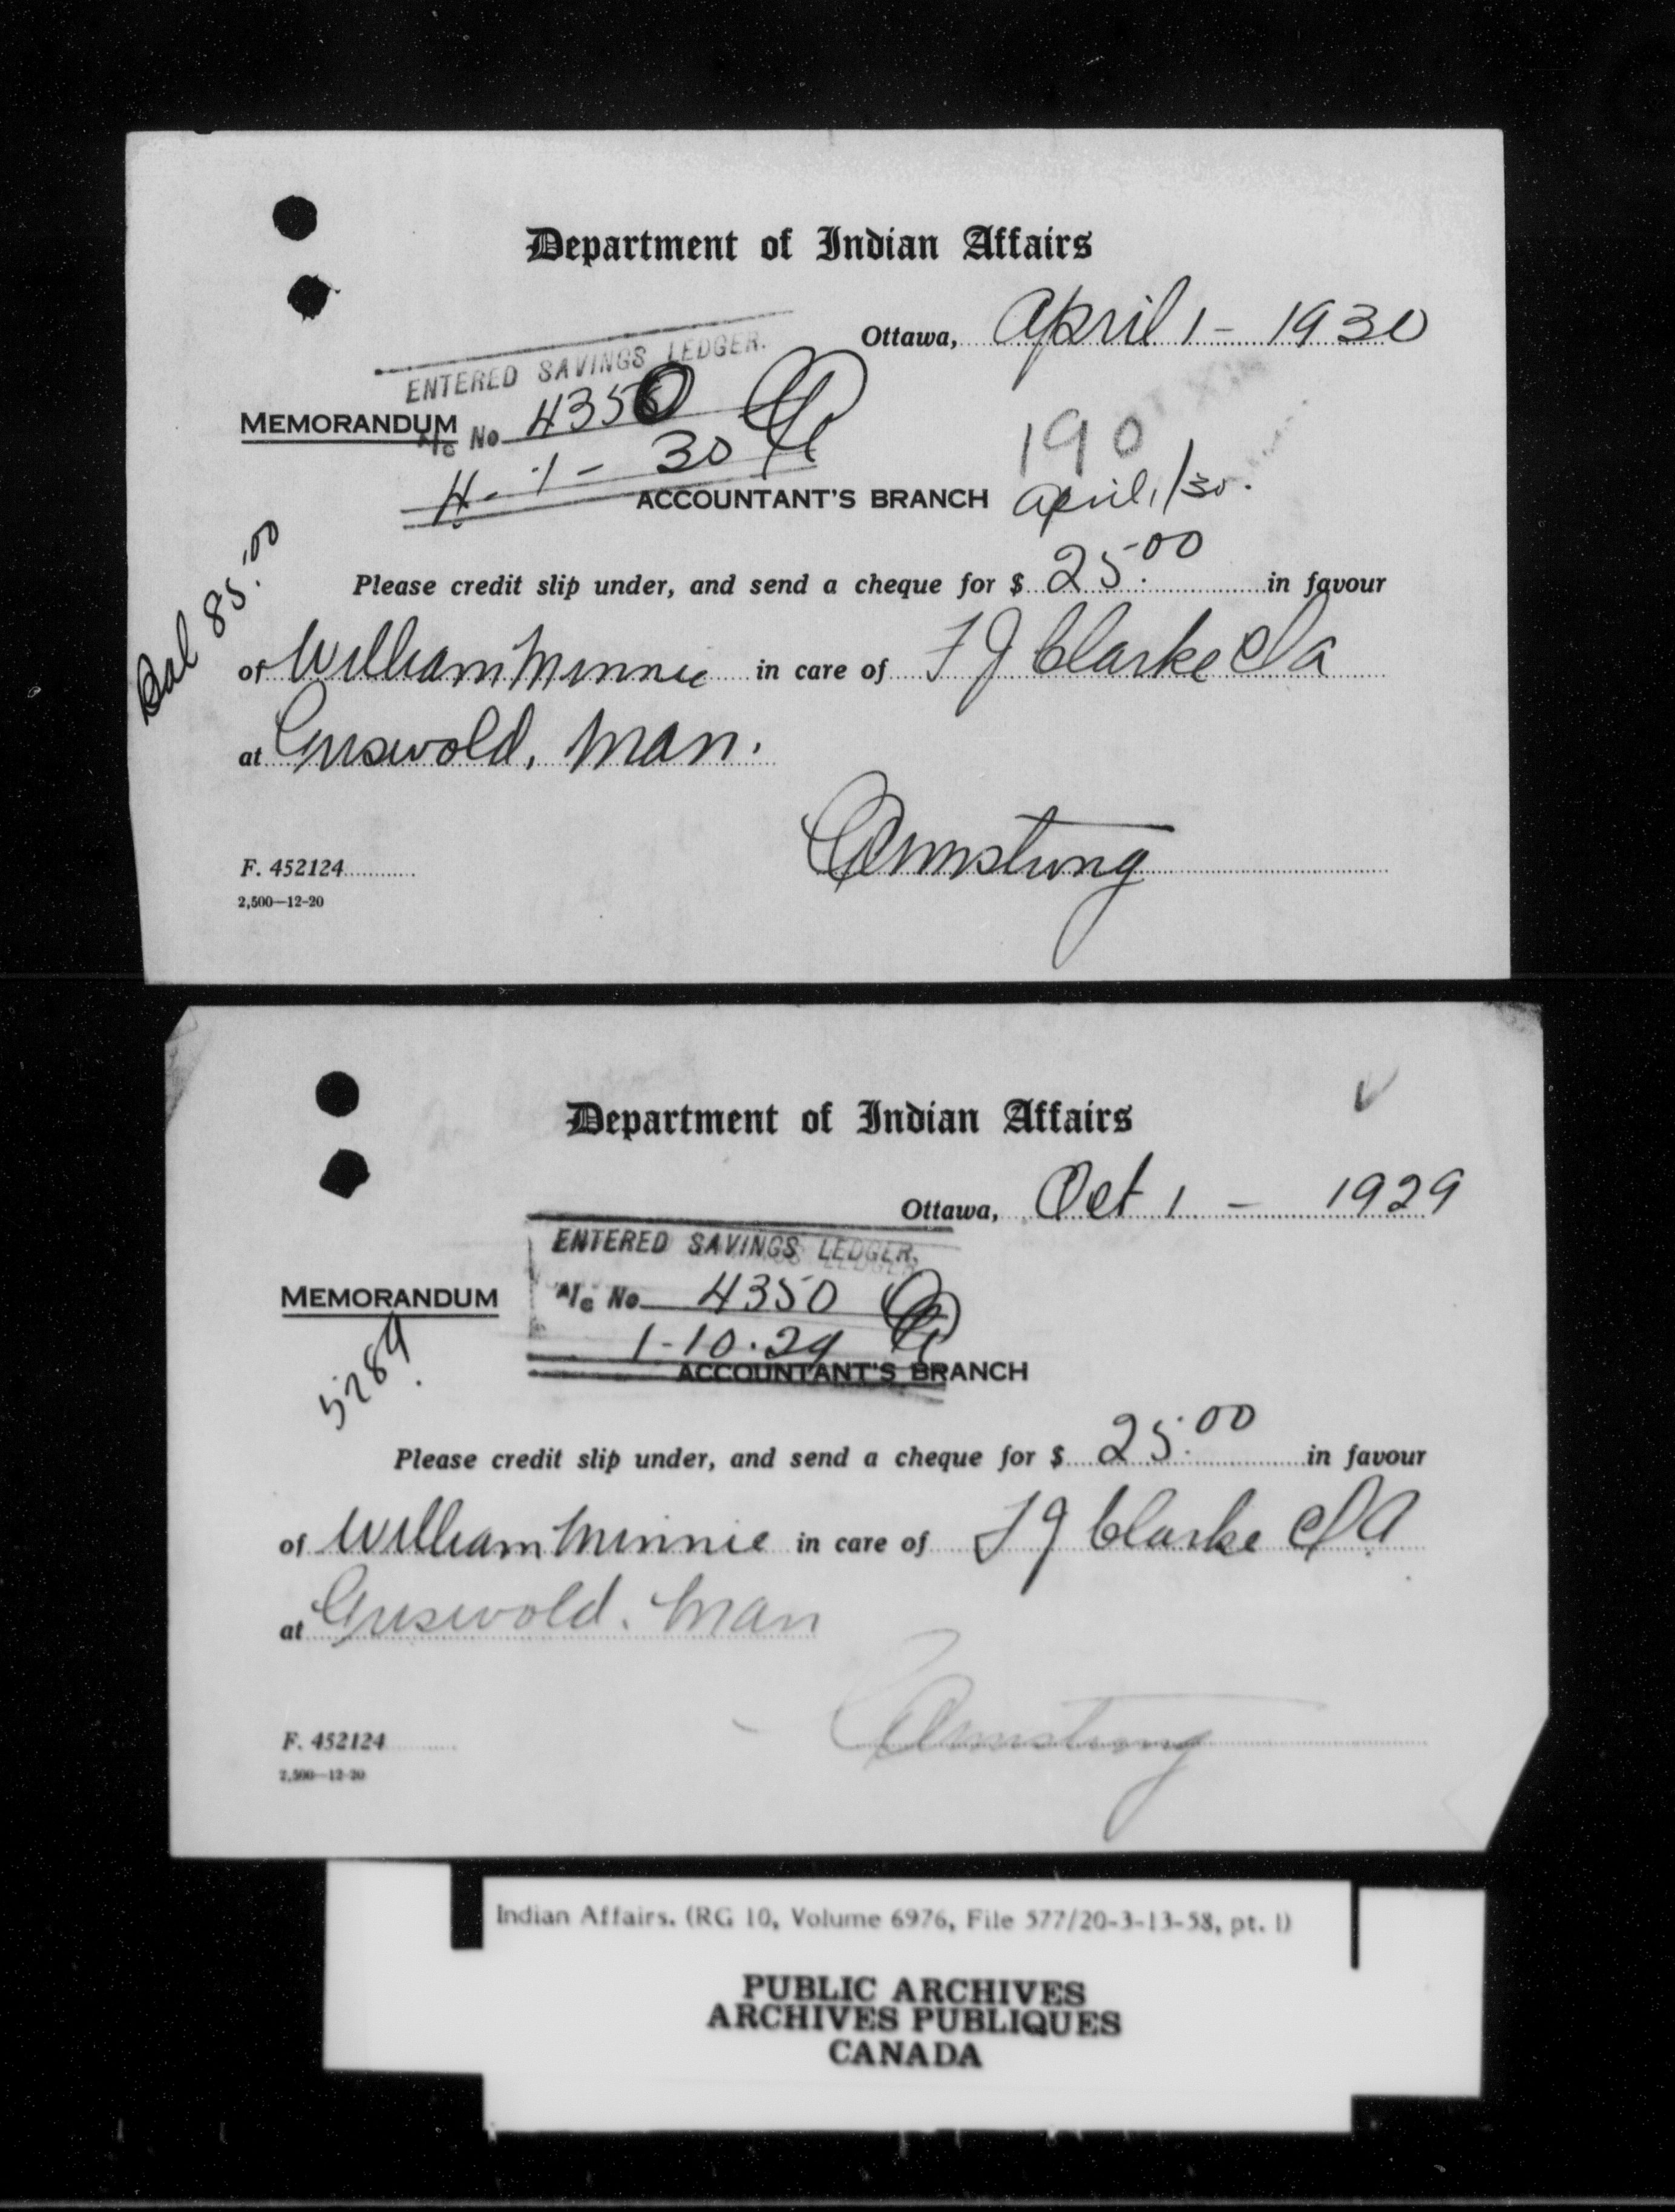 Department of Indian Affairs
Ottawa, April 1 - 1930
ENTERED SAVINGS LEDGER.
MEMORANDUM
A/c No 4350
4-1-30
190
ACCOUNTANT'S BRANCH April 1/30.
Bal 85.00
Please credit slip under, and send a cheque for $ 25.00 in favour
of William Minnie in care of F J Clarke I a
at Griswold, Man.
Armstrong
F. 452124
2,500—12-20
Department of Indian Affairs
Ottawa, Oct 1 - 1929
ENTERED SAVINGS LEDGER.
MEMORANDUM A/c No 4350
1-10-29
ACCOUNTANT'S BRANCH
5289
Please credit slip under, and send a cheque for $ 25.00 in favour
of William Minnie in care of F J Clarke I A
at Griswold. Man
Armstrong
F. 452124
2,500—12-20
Indian Affairs. (RG 10, Volume 6976, File 577/20-3-13-58, pt. 1)
PUBLIC ARCHIVES
ARCHIVES PUBLIQUES
CANADA